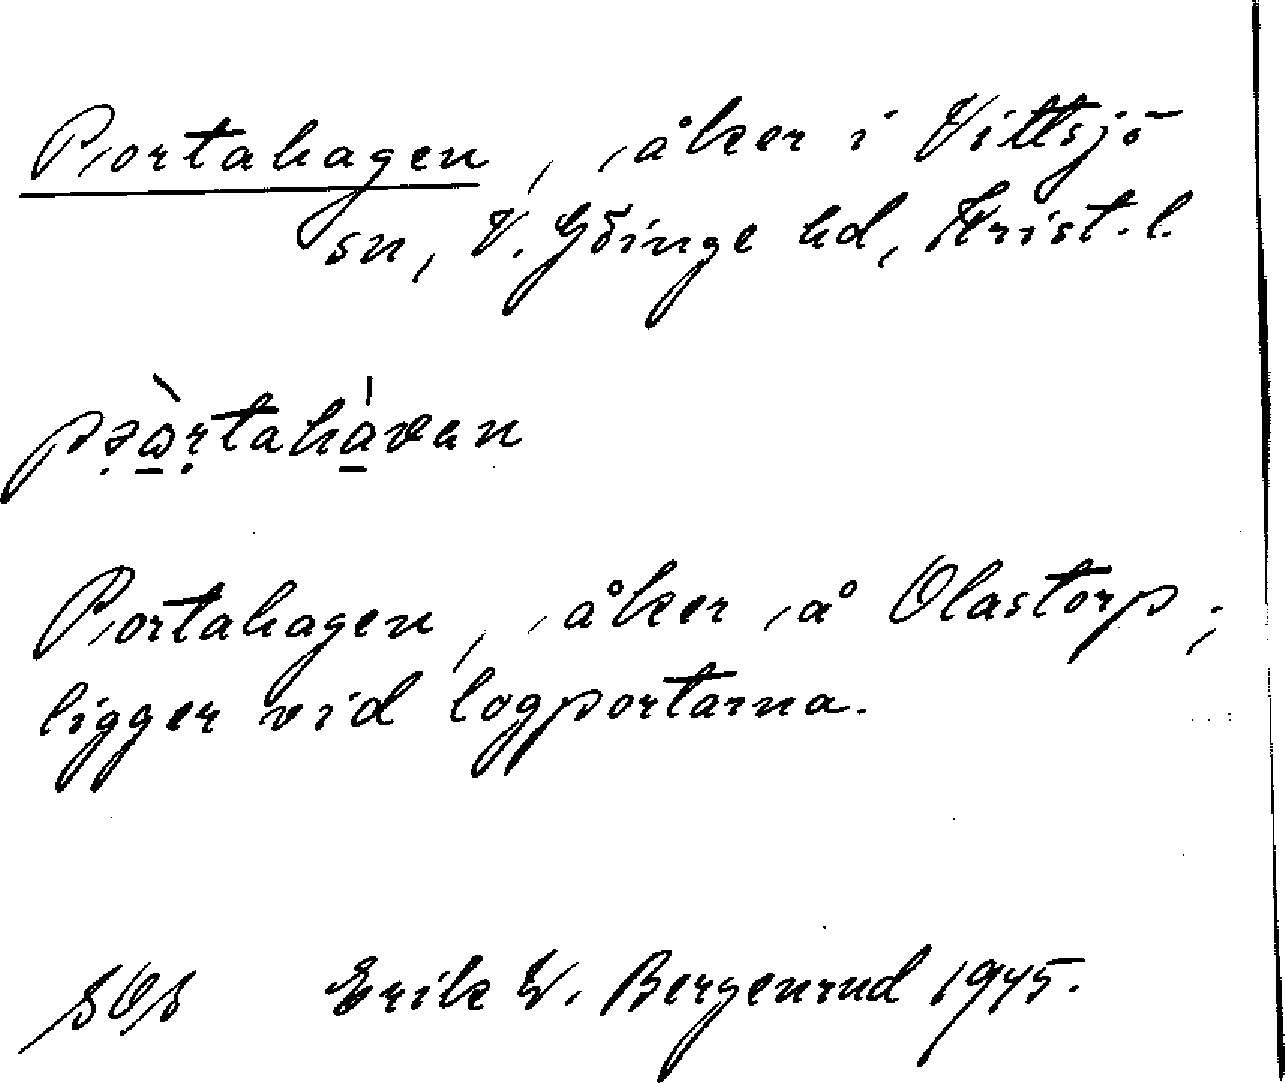 Portahagen, åker i Vittsjö
sn, V. Göinge hd, Krist. l.
Portahagen, åker å Olastorp;
ligger vid logportarna.
Erik W. Bergenrud 1945.